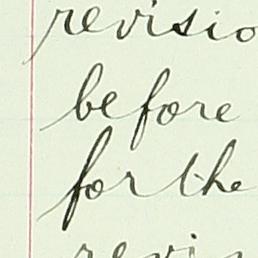 revisio
before
for the
revis